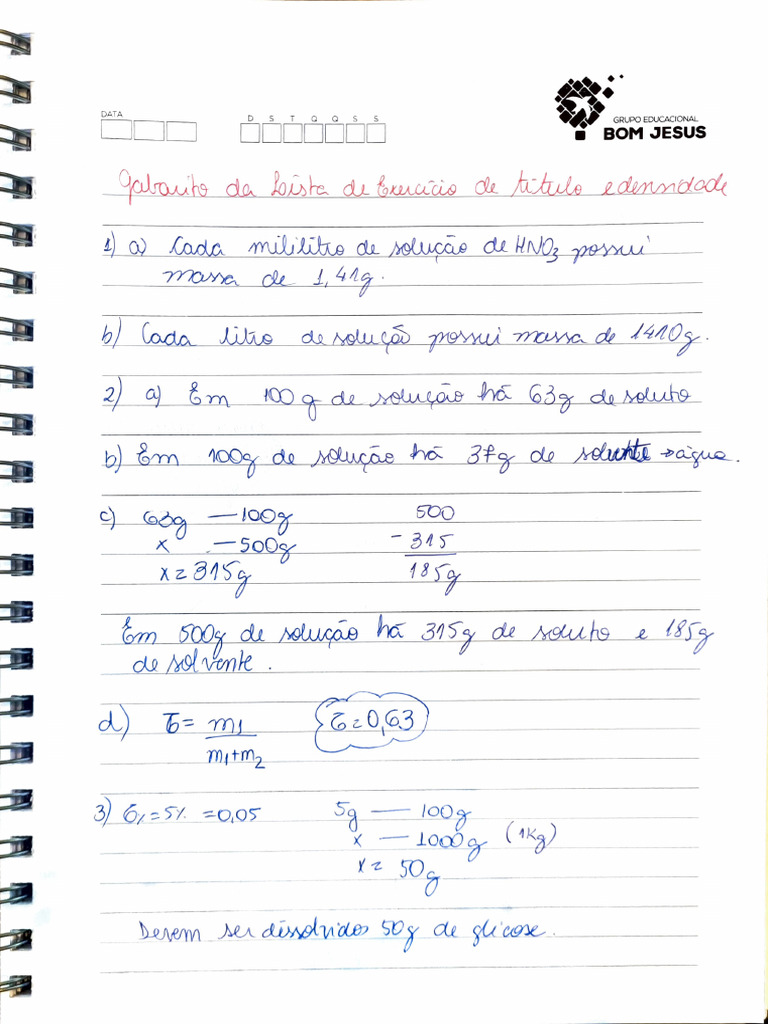 DATA
D S T Q Q S S
GRUPO EDUCACIONAL
BOM JESUS
Gabarito da Lista de Exercício de título e densidade
1) a) Cada mililitro de solução de HNO3 possui
massa de 1,41g.
b) Cada litro de solução possui massa de 1410g.
2) a) Em 100 g de solução há 63g de soluto
b) Em 100g de solução há 37g de solvente → água.
c) 63g — 100g 500
x — 500g - 315
x = 315g 185g
Em 500g de solução há 315g de soluto e 185g
de solvente.
d) τ = m1 τ = 0,63
m1+m2
3) τ% = 5% = 0,05 5g — 100g
x — 1000g (1Kg)
x = 50g
Devem ser dissolvidos 50g de glicose.